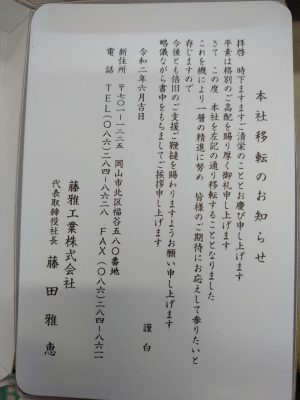 本社移転のお知らせ
拝啓　時下ますますご清栄のこととお慶び申し上げます
平素は格別のご高配を賜り厚く御礼申し上げます
さて　この度　本社を左記の通り移転することとなりました
これを機により一層の精進に努め　皆様のご期待にお応えして参りたいと
存じますので
今後とも倍旧のご支援ご鞭撻を賜わりますようお願い申し上げます
略儀ながら書中をもちましてご挨拶申し上げます
謹白
令和二年六月吉日
新住所　〒七〇一―一二二五　岡山市北区福谷五八〇番地
電話　TEL(〇八六)二八四―八六二八　FAX(〇八六)二八四―八六二一
藤雅工業株式会社
代表取締役社長　藤田雅恵